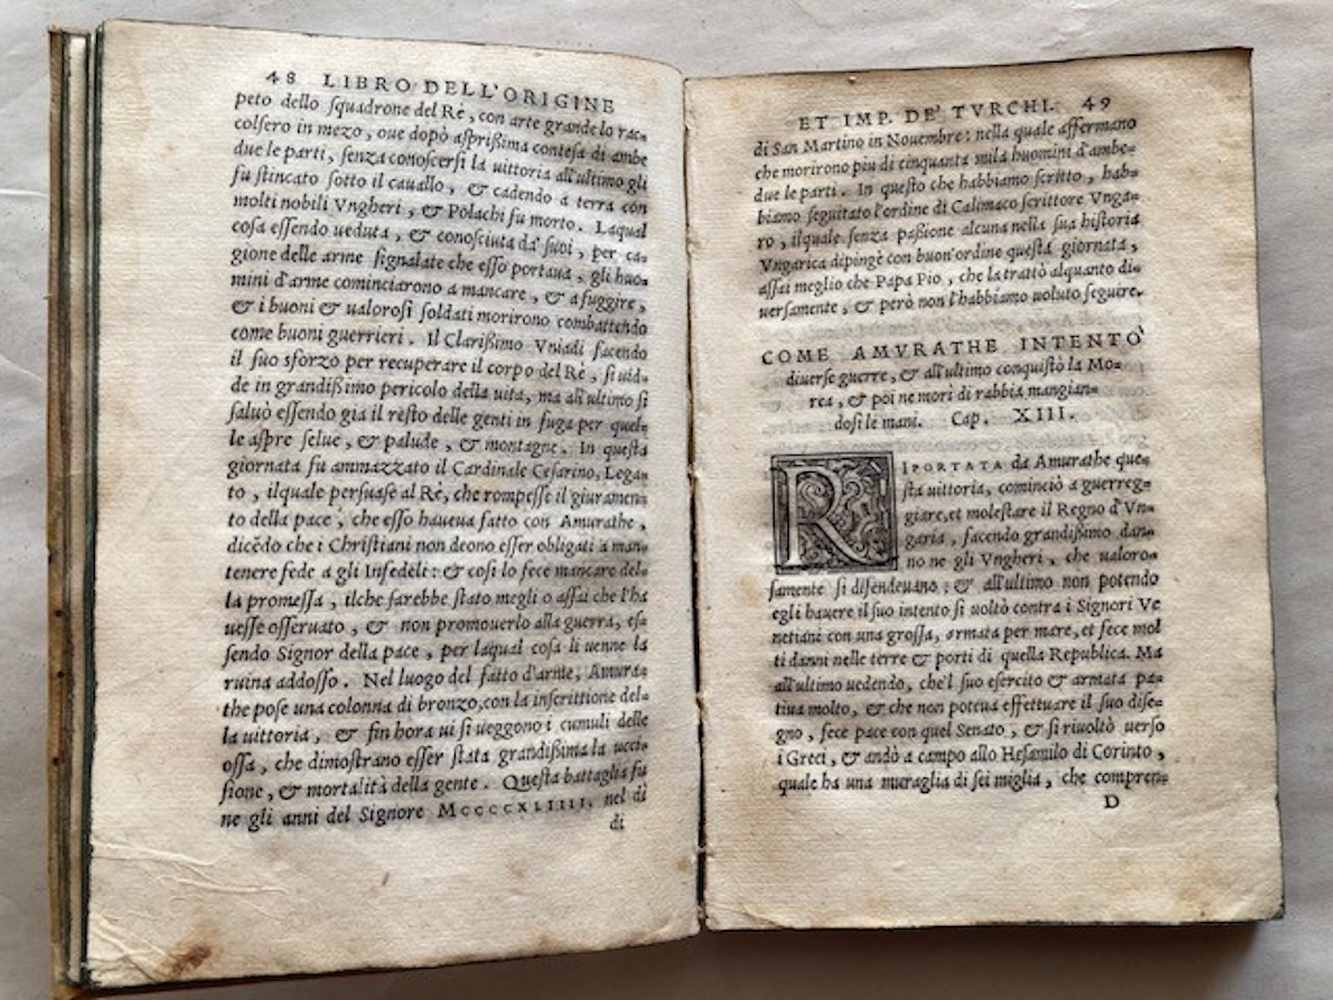 48 LIBRO DELL'ORIGINE
peto dello ſquadrone del Rè, con arte grande lo rac-
colſero in mezo, oue dopò aſprißima conteſa di ambe
due le parti, ſenza conoſcerſi la uittoria all'ultimo gli
fu ſtincato ſotto il cauallo, & cadendo a terra con
molti nobili Vngheri, & Polachi fu morto. Laqual
coſa eſſendo ueduta, & conoſciuta da' ſuoi, per ca-
gione delle arme ſignalate che eſſo portaua, gli huo-
mini d'arme cominciarono a mancare, & a fuggire,
& i buoni & ualoroſi ſoldati morirono combattendo
come buoni guerrieri. Il Clarißimo Vniadi facendo
il ſuo sforzo per recuperare il corpo del Rè, ſi uid-
de in grandißimo pericolo della uita, ma all'ultimo ſi
ſaluò eſſendo gia il reſto delle genti in fuga per quel-
le aſpre ſelue, & palude, & montagne. In queſta
giornata fu ammazzato il Cardinale Ceſarino, Lega-
to, ilquale perſuaſe al Rè, che rompeſſe il giuramen-
to della pace, che eſſo haueua fatto con Amurathe,
dicẽdo che i Chriſtiani non deono eſſer obligati a man-
tenere fede a gli Infedeli: & coſi lo fece mancare del-
la promeſſa, ilche ſarebbe ſtato megli o aſſai che l'ha
ueſſe oſſeruato, & non promouerlo alla guerra, eſ-
ſendo Signor della pace, per laqual coſa li uenne la
ruina addoſſo. Nel luogo del fatto d'arme, Amura-
the poſe una colonna di bronzo, con la inſcrittione del-
la uittoria, & fin hora ui ſi ueggono i cumuli delle
oſſa, che dimoſtrano eſſer ſtata grandißima la ucci-
ſione, & mortalità della gente. Queſta battaglia fu
ne gli anni del Signore MCCCCXLIIII, nel dì
di
ET IMP. DE' TVRCHI. 49
di San Martino in Nouembre: nella quale affermano
che morirono piu di cinquanta mila huomini d'ambe-
due le parti. In queſto che habbiamo ſcritto, hab-
biamo ſeguitato l'ordine di Calimaco ſcrittore Vnga-
ro, ilquale ſenza paßione alcuna nella ſua hiſtoria
Vngarica dipinge con buon'ordine queſta giornata,
aſſai meglio che Papa Pio, che la trattò alquanto di-
uerſamente, & però non l'habbiamo uoluto ſeguire.
COME AMVRATHE INTENTO'
diuerſe guerre, & all'ultimo conquiſtò la Mo-
rea, & poi ne morì di rabbia mangian-
doſi le mani. Cap. XIII.
RIPORTATA da Amurathe que-
ſta uittoria, cominciò a guerreg-
giare, et moleſtare il Regno d'Vn-
garia, facendo grandißimo dan-
no ne gli Vngheri, che ualoro-
ſamente ſi difendeuano: & all'ultimo non potendo
egli hauere il ſuo intento ſi uoltò contra i Signori Ve
netiani con una groſſa, armata per mare, et fece mol
ti danni nelle terre & porti di quella Republica. Ma
all'ultimo uedendo, che'l ſuo eſercito & armata pa-
tiua molto, & che non poteua effettuare il ſuo diſe-
gno, fece pace con quel Senato, & ſi riuoltò uerſo
i Greci, & andò a campo allo Heſamilo di Corinto,
quale ha una muraglia di ſei miglia, che compren-
D